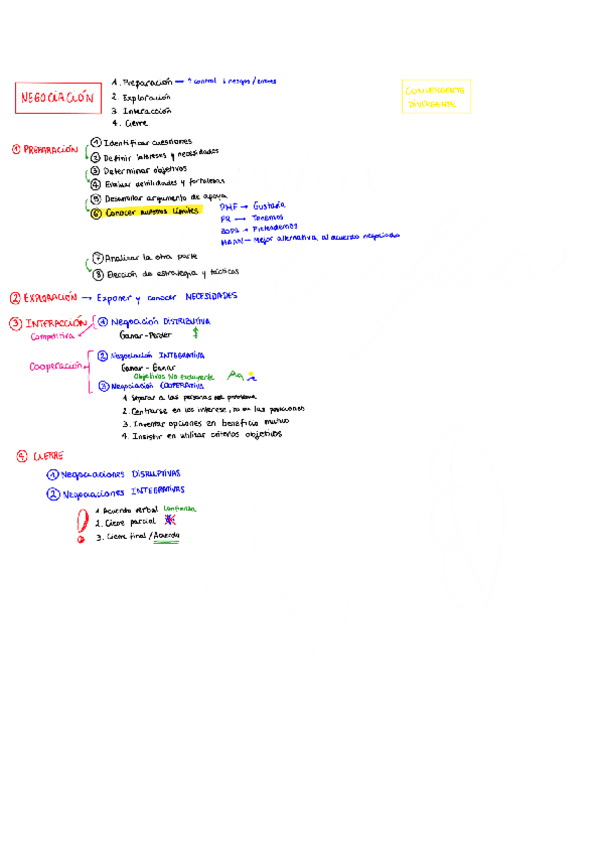 NEGOCIACIÓN
1. Preparación → ↑ control ↓ riesgos / errores
2. Exploración
3. Interacción
4. Cierre
CONVERGENTE
DIVERGENTE
① PREPARACIÓN
① Identificar cuestiones
② Definir intereses y necesidades
③ Determinar objetivos
④ Evaluar debilidades y fortalezas
⑤ Desarrollar argumento de apoyo
⑥ Conocer nuestros Límites
PMF → Gustaría
PR → Tenemos
ZOPA → Pretendemos
MAAN — Mejor alternativa, al acuerdo negociado
⑦ Analizar la otra parte
⑧ Elección de estrategia y tácticas
② EXPLORACIÓN → Exponer y conocer NECESIDADES
③ INTERACCIÓN
Competitiva
① Negociación DISTRIBUTIVA
Ganar-Perder
Cooperación
② Negociación INTEGRATIVA
Ganar - Ganar
Objetivos No excluyente
③ Negociación COOPERATIVA
1. Separar a las personas del problema
2. Centrarse en los interese, no en las posiciones
3. Inventar opciones en beneficio mutuo
4. Insistir en utilizar criterios objetivos
④ CIERRE
① Negociaciones DISRUPTIVAS
② Negociaciones INTEGRATIVAS
1 Acuerdo verbal Confianza
2. Cierre parcial
3. Cierre final / Acuerdo